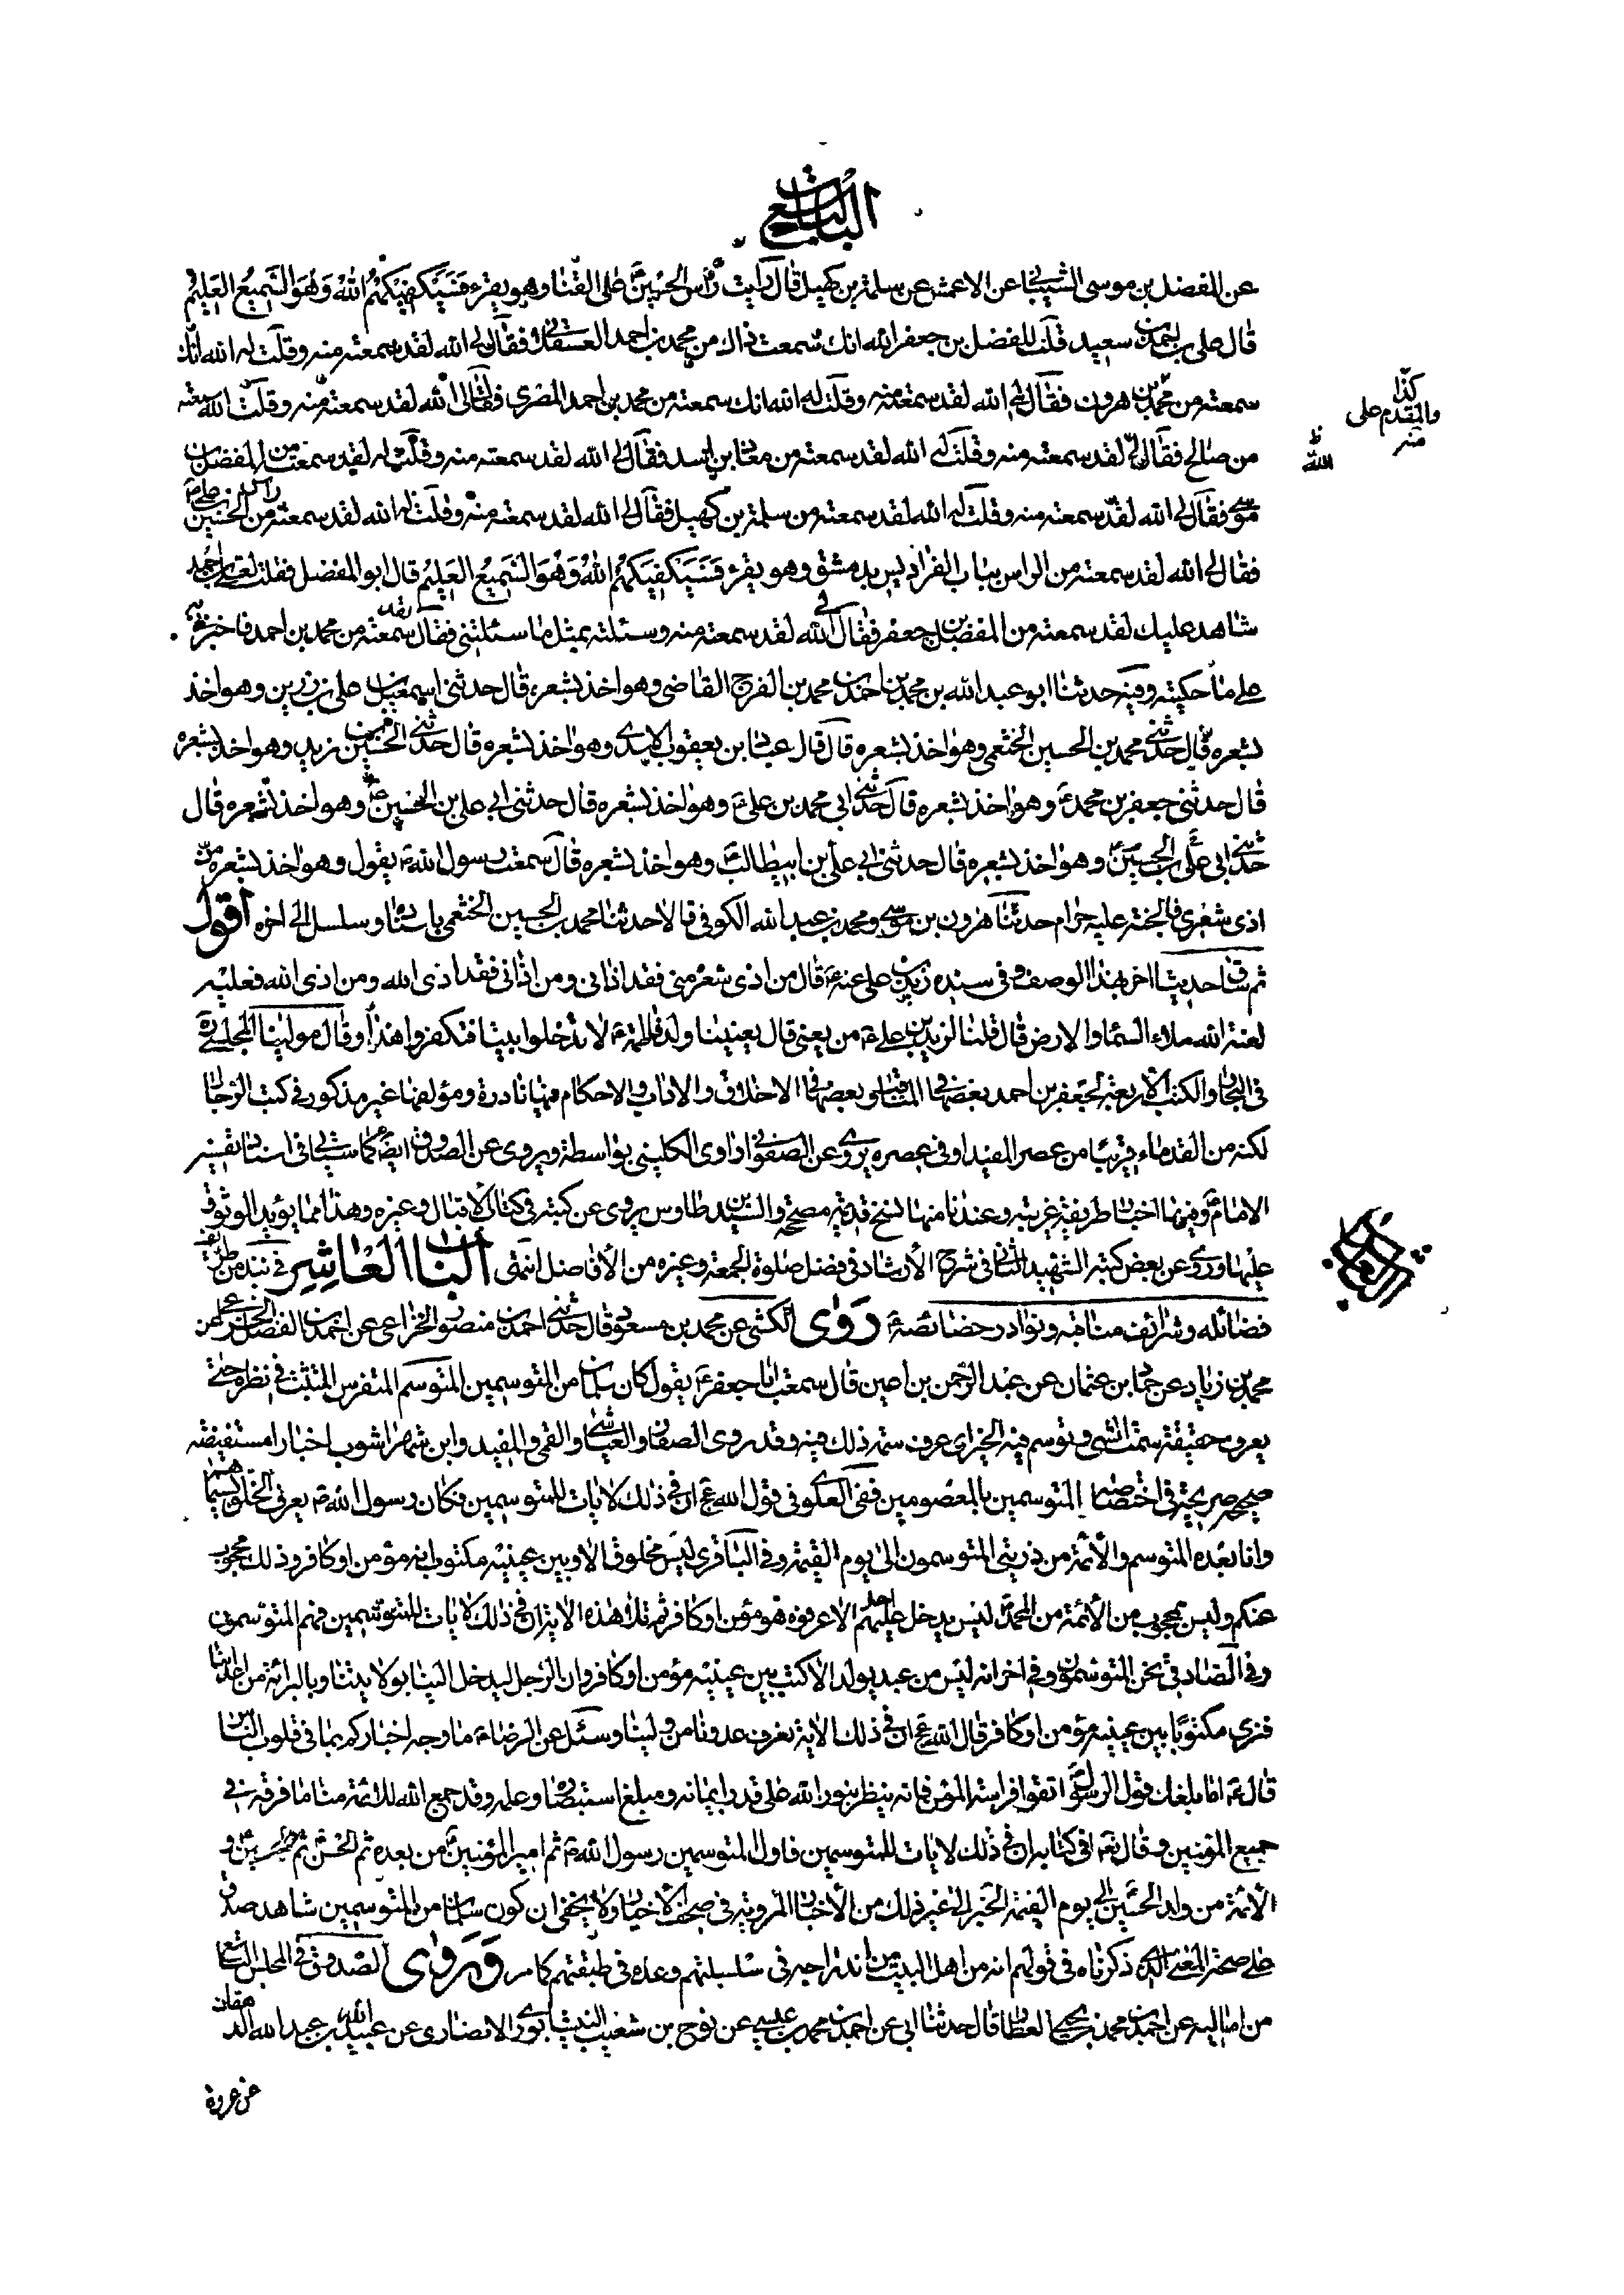 الباب التاسع
عن الفضل بن موسى الشيباني عن الاعمش عن سلمة بن كهيل قال رايت راس الحسين على القنا وهو يقرء فَسَيَكْفِيكَهُمُ اللهُ وَهُوَ السَّمِيعُ الْعَلِيمُ
قال علي بن احمد بن سعيد قلت للمفضل بن جعفر الله انك سمعت ذاك من محمد بن احمد العسقلاني فقال لي الله لقد سمعته منه وقلت له الله انك
سمعته من محمد بن هرون فقال لي الله لقد سمعته منه وقلت له الله انك سمعته من محمد بن احمد المصري فقال لي الله لقد سمعته منه وقلت الله سمعته
كذا
والمقدم على
منه
الله
من صالح فقال لي لقد سمعته منه وقلت له الله لقد سمعته من معاذ بن اسد فقال لي الله لقد سمعته منه وقلت له لقد سمعته من الفضل بن
موسى فقال لي الله لقد سمعته منه وقلت له الله لقد سمعته من سلمة بن كهيل فقال لي الله لقد سمعته منه وقلت له الله لقد سمعته من راس الحسين
فقال لي الله لقد سمعته من الراس بباب الفراديس بدمشق وهو يقرء فَسَيَكْفِيكَهُمُ اللهُ وَهُوَ السَّمِيعُ الْعَلِيمُ قال ابو المفضل فقلت لعلي بن احمد
شاهد عليك لقد سمعته من المفضل بن جعفر فقال لي الله لقد سمعته منه وسئلته بمثل ما سئلتني فقال لقد سمعته من محمد بن احمد فاخبرني
على ما حكيته وفيه حدثنا ابو عبد الله بن محمد بن احمد بن محمد بن الفرج القاضي وهو اخذ بشعره قال حدثني اسمعيل بن علي بن رزين وهو اخذ
بشعره قال حدثني محمد بن الحسين الخثعمي وهو اخذ بشعره قال قال عباد بن يعقوب الاسدي وهو اخذ بشعره قال حدثني الحسين بن زيد وهو اخذ بشعره
قال حدثني جعفر بن محمد ع وهو اخذ بشعره قال حدثني ابي محمد بن علي ع وهو اخذ بشعره قال حدثني ابي علي بن الحسين ع وهو اخذ بشعره قال
حدثني ابي الحسين ع وهو اخذ بشعره قال حدثني ابي علي بن ابيطالب ع وهو اخذ بشعره قال سمعت رسول الله ص يقول وهو اخذ بشعره من
اذى شعري فالجنة عليه حرام حدثنا هرون بن موسى ومحمد بن عبد الله الكوفي قالا حدثنا محمد بن الحسين الخثعمي باسناده وسلسل الى اخره اقول
ثم ساق حديثا اخر بهذا الوصف وفي سنده زيد بن علي عنه ع قال من اذى شعر مني فقد اذاني ومن اذاني فقد اذى الله ومن اذى الله فعليه
لعنة الله ملاء السماء والارض قال قلنا لزيد بن علي ع من يعني قال يعنينا ولد فاطمة ع لا تدخلوا بيننا فتكفروا هذا وقال مولينا المجلسي ره
في البحار والكتب الاربعة لجعفر بن احمد بعضها في المناقب وبعضها في الاخلاق والاداب والاحكام فيها نادرة ومؤلفها غير مذكور في كتب الرجال
لكنه من القدماء قريبا من عصر المفيد او في عصره يروي عن الصفواني راوي الكليني بواسطة ويروي عن الصدوق ايضا كما سياتي في اسناد تفسير
الامام ع وفيها اخبار طريفة غريبة وعندنا منها نسخ قديمة مصححة والسيد بن طاوس يروي عن كتبه في كتاب الاقبال وغيره وهذا مما يؤيد الوثوق
عليها وروى عن بعض كتبه الشهيد الثاني في شرح الارشاد في فضل صلوة الجمعة وغيره من الافاضل انتهى الباب العاشر في نبذ من طرايف
الباب العاشر
فضائله وشرائف مناقبه ونوادر خصائصه روى الكشي عن محمد بن مسعود قال حدثني احمد بن منصور الخزاعي عن احمد بن الفضل الخزاعي عن
محمد بن زياد عن حماد بن عثمان عن عبد الرحمن بن اعين قال سمعت ابا جعفر ع يقول كان سلمان من المتوسمين المتوسم المتفرس المتثبت في نظره حتى
يعرف حقيقة سمت الشئ وتوسم فيه الخير اي عرف سمة ذلك فيه وقد روى الصفار والعياشي والقمي والمفيد وابن شهراشوب اخبارا مستفيضة
صحيحة صريحة في اختصاص المتوسمين بالمعصومين ففي العلوي في قول الله عز ان في ذلك لايات للمتوسمين فكان رسول الله ص يعرف الخلق بسيماهم
وانا بعده المتوسم والائمة من ذريتي المتوسمون الى يوم القيمة وفي الباقري ليس مخلوق الا وبين عينيه مكتوب انه مؤمن او كافر وذلك محجوب
عنكم وليس بمحجوب من الائمة من ال محمد ليس يدخل عليهم احد الا عرفوه هو مؤمن او كافر ثم تلا هذه الاية ان في ذلك لايات للمتوسمين فهم المتوسمون
وفي الصادقي نحن المتوسمون وفي اخر انه ليس من عبد يولد الا كتب بين عينيه مؤمن او كافر وان الرجل ليدخل الينا بولايتنا وبالبرائة من اعدائنا
فنرى مكتوبا بين عينيه مؤمن او كافر قال الله عز ان في ذلك الاية نعرف عدونا من ولينا وسئل عن الرضا ع ما وجه اخباركم بما في قلوب الناس
قال ع اما بلغك قول الرسول ص اتقوا فراسة المؤمن فانه ينظر بنور الله على قدر ايمانه ومبلغ استبصاره وعلمه وقد جمع الله للائمة منا ما فرقه في
جميع المؤمنين وقال تعالى في كتابه ان في ذلك لايات للمتوسمين فاول المتوسمين رسول الله ص ثم امير المؤمنين ع من بعده ثم الحسن ثم الحسين و
الائمة من ولد الحسين الى يوم القيمة الخبر الى غير ذلك من الاخبار المروية في صحف الاخيار ولا يخفى ان كون سلمان من المتوسمين شاهد صدق
على صحة المعنى الذي ذكرناه في قولهم انه من اهل البيت من اندراجه في سلسلتهم وعده في طبقتهم كما مر وروى الصدوق في المجلس التاسع
من اماليه عن احمد بن محمد بن يحيى العطار قال حدثنا ابي عن احمد بن محمد بن عيسى عن نوح بن شعيب النيشابوري الانصاري عن عبيد الله بن عبد الله الدهقان
عن عروة